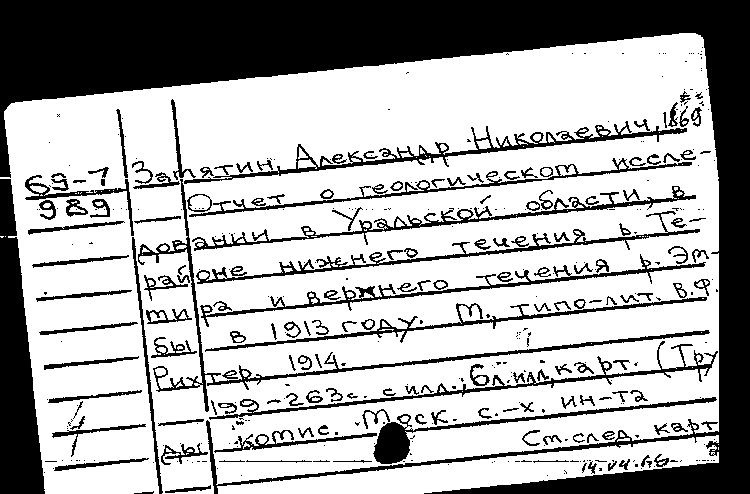 69-7
989
Замятин, Александр Николаевич, 1869
Отчет о геологическом иссле-
довании в Уральской области, в
районе нижнего течения р. Те-
мира и верхнего течения р. Эм-
бы в 1913 году. М., типо-лит. В.Ф.
Рихтер, 1914.
199-263 с. с илл.; бл. илл., карт. (Тру
ды комис. Моск. с.-х. ин-та
См. след. карт